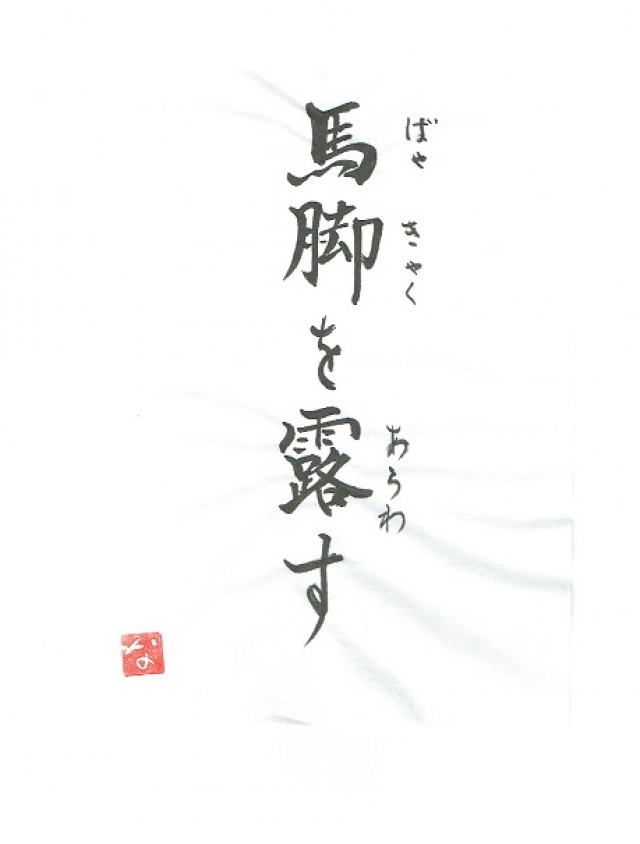 馬脚を露す
ばや きゃく
あらわ
な